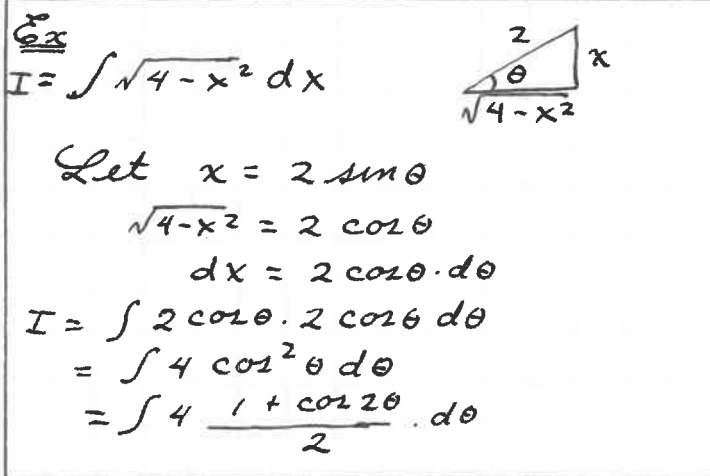 Ex
I = ∫ √4-x² dx
2
x
θ
√4-x²
Let x = 2 sinθ
√4-x² = 2 cosθ
dx = 2 cosθ·dθ
I = ∫ 2 cosθ · 2 cosθ dθ
= ∫ 4 cos² θ dθ
= ∫ 4 (1 + cos 2θ)/2 · dθ